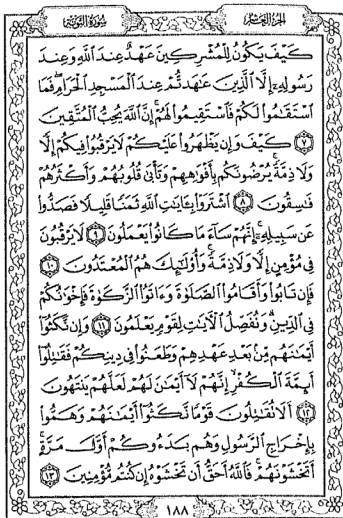 الجزء العاشر
سورة التوبة
كَيْفَ يَكُونُ لِلْمُشْرِكِينَ عَهْدٌ عِندَ اللَّهِ وَعِندَ
رَسُولِهِ إِلَّا الَّذِينَ عَاهَدتُّمْ عِندَ الْمَسْجِدِ الْحَرَامِ فَمَا
اسْتَقَامُوا لَكُمْ فَاسْتَقِيمُوا لَهُمْ إِنَّ اللَّهَ يُحِبُّ الْمُتَّقِينَ
٧ كَيْفَ وَإِن يَظْهَرُوا عَلَيْكُمْ لَا يَرْقُبُوا فِيكُمْ إِلًّا
وَلَا ذِمَّةً يُرْضُونَكُم بِأَفْوَاهِهِمْ وَتَأْبَى قُلُوبُهُمْ وَأَكْثَرُهُمْ
فَاسِقُونَ ٨ اشْتَرَوْا بِآيَاتِ اللَّهِ ثَمَنًا قَلِيلًا فَصَدُّوا
عَن سَبِيلِهِ إِنَّهُمْ سَاءَ مَا كَانُوا يَعْمَلُونَ ٩ لَا يَرْقُبُونَ
فِي مُؤْمِنٍ إِلًّا وَلَا ذِمَّةً وَأُولَئِكَ هُمُ الْمُعْتَدُونَ ١٠
فَإِن تَابُوا وَأَقَامُوا الصَّلَوٰةَ وَآتَوُا الزَّكَوٰةَ فَإِخْوَانُكُمْ
فِي الدِّينِ وَنُفَصِّلُ الْآيَاتِ لِقَوْمٍ يَعْلَمُونَ ١١ وَإِن نَّكَثُوا
أَيْمَانَهُم مِّن بَعْدِ عَهْدِهِمْ وَطَعَنُوا فِي دِينِكُمْ فَقَاتِلُوا
أَئِمَّةَ الْكُفْرِ إِنَّهُمْ لَا أَيْمَانَ لَهُمْ لَعَلَّهُمْ يَنتَهُونَ
١٢ أَلَا تُقَاتِلُونَ قَوْمًا نَّكَثُوا أَيْمَانَهُمْ وَهَمُّوا
بِإِخْرَاجِ الرَّسُولِ وَهُم بَدَءُوكُمْ أَوَّلَ مَرَّةٍ
أَتَخْشَوْنَهُمْ فَاللَّهُ أَحَقُّ أَن تَخْشَوْهُ إِن كُنتُم مُّؤْمِنِينَ ١٣
١٨٨